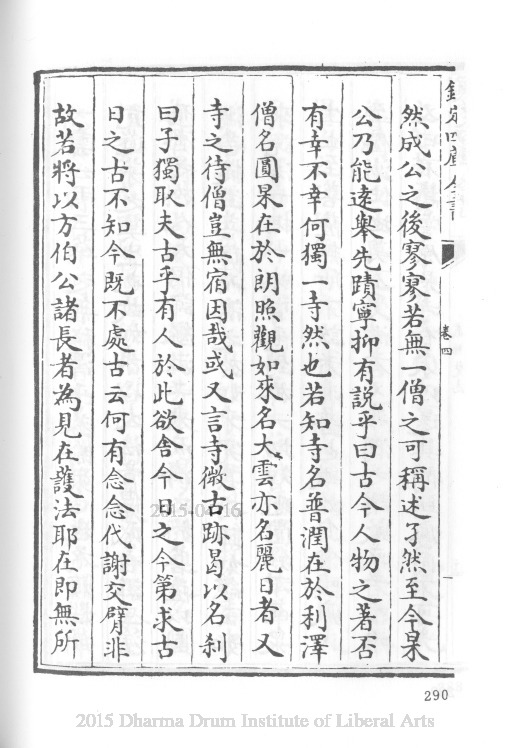 欽定四庫全書
卷四
然成公之後寥寥若無一僧之可稱述孑然至今杲
公乃能遠舉先蹟寧抑有説乎曰古今人物之著否
有幸不幸何獨一寺然也若知寺名普潤在於利澤
僧名圓杲在於朗照觀如來名大雲亦名麗日者又
寺之待僧豈無宿因哉或又言寺徴古跡曷以名刹
曰子獨取夫古乎有人於此欲舍今日之今第求古
日之古不知今既不處古云何有念念代謝交臂非
故若將以方伯公諸長者為見在護法耶在即無所
290
2015-04-16
2015 Dharma Drum Institute of Liberal Arts